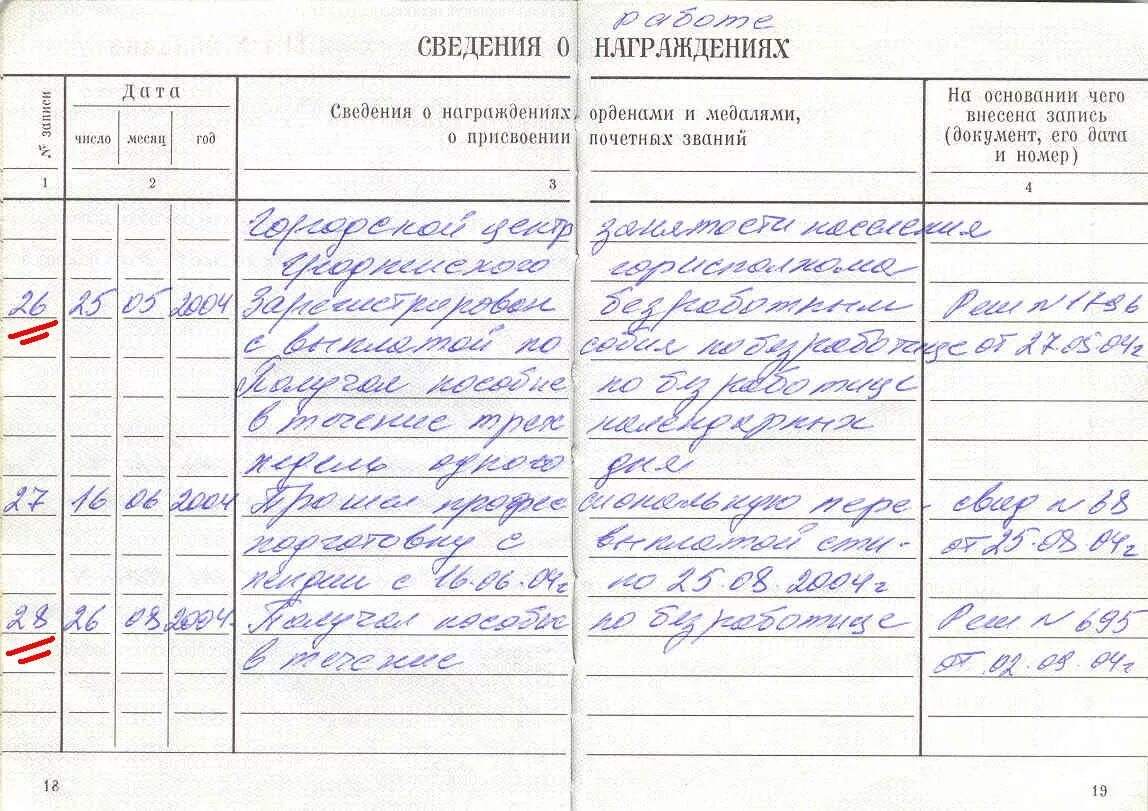 работе
СВЕДЕНИЯ О НАГРАЖДЕНИЯХ
№ записи
Дата
число месяц год
Сведения о награждениях орденами и медалями,
о присвоении почетных званий
На основании чего
внесена запись
(документ, его дата
и номер)
1 2 3 4
Городской центр занятости населения
Гродненского горисполкома
26 25 05 2004 Зарегистрирован безработным Реш N 1796
с выплатой пособия по безработице от 27.05.04г
Получал пособие по безработице
в течение трех календарных
недель одного дня
27 16 06 2004 Прошел профессиональную пере- свид N 38
подготовку с выплатой сти- от 25.08.04г
пендии с 16.06.04г по 25.08.2004г
28 26 08 2004 Получал пособие по безработице Реш N 695
в течение от 02.09.04г
18 19